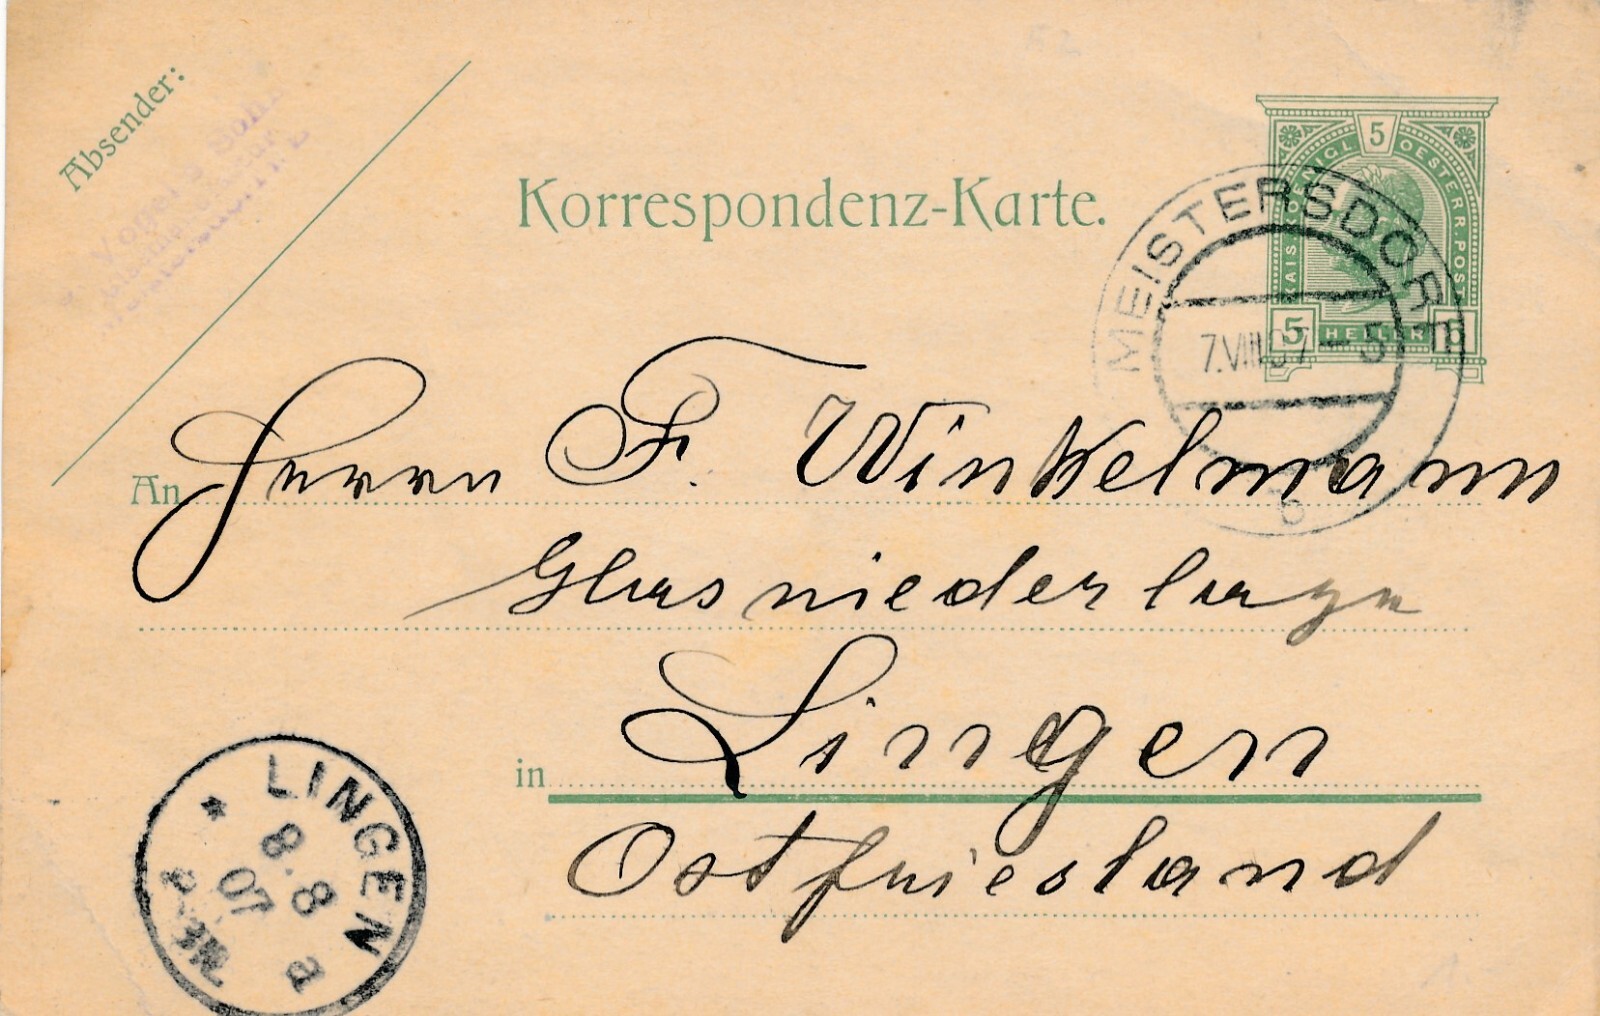 Absender:
Korrespondenz-Karte.
5
KAIS. KOENIGL. OESTERR. POST
5 HELLER 5
MEISTERSDORF
7.VIII.07-5
An Herrn F. Winkelmann
Glasniederlage
in Lingen
Ostfriesland
LINGEN
8.8
07
a